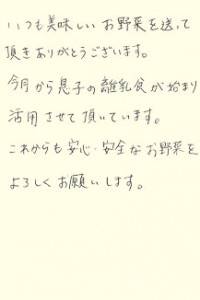 いつも美味しいお野菜を送って
頂きありがとうございます。
今月から息子の離乳食が始まり
活用させて頂いています。
これからも安心・安全なお野菜を
よろしくお願いします。